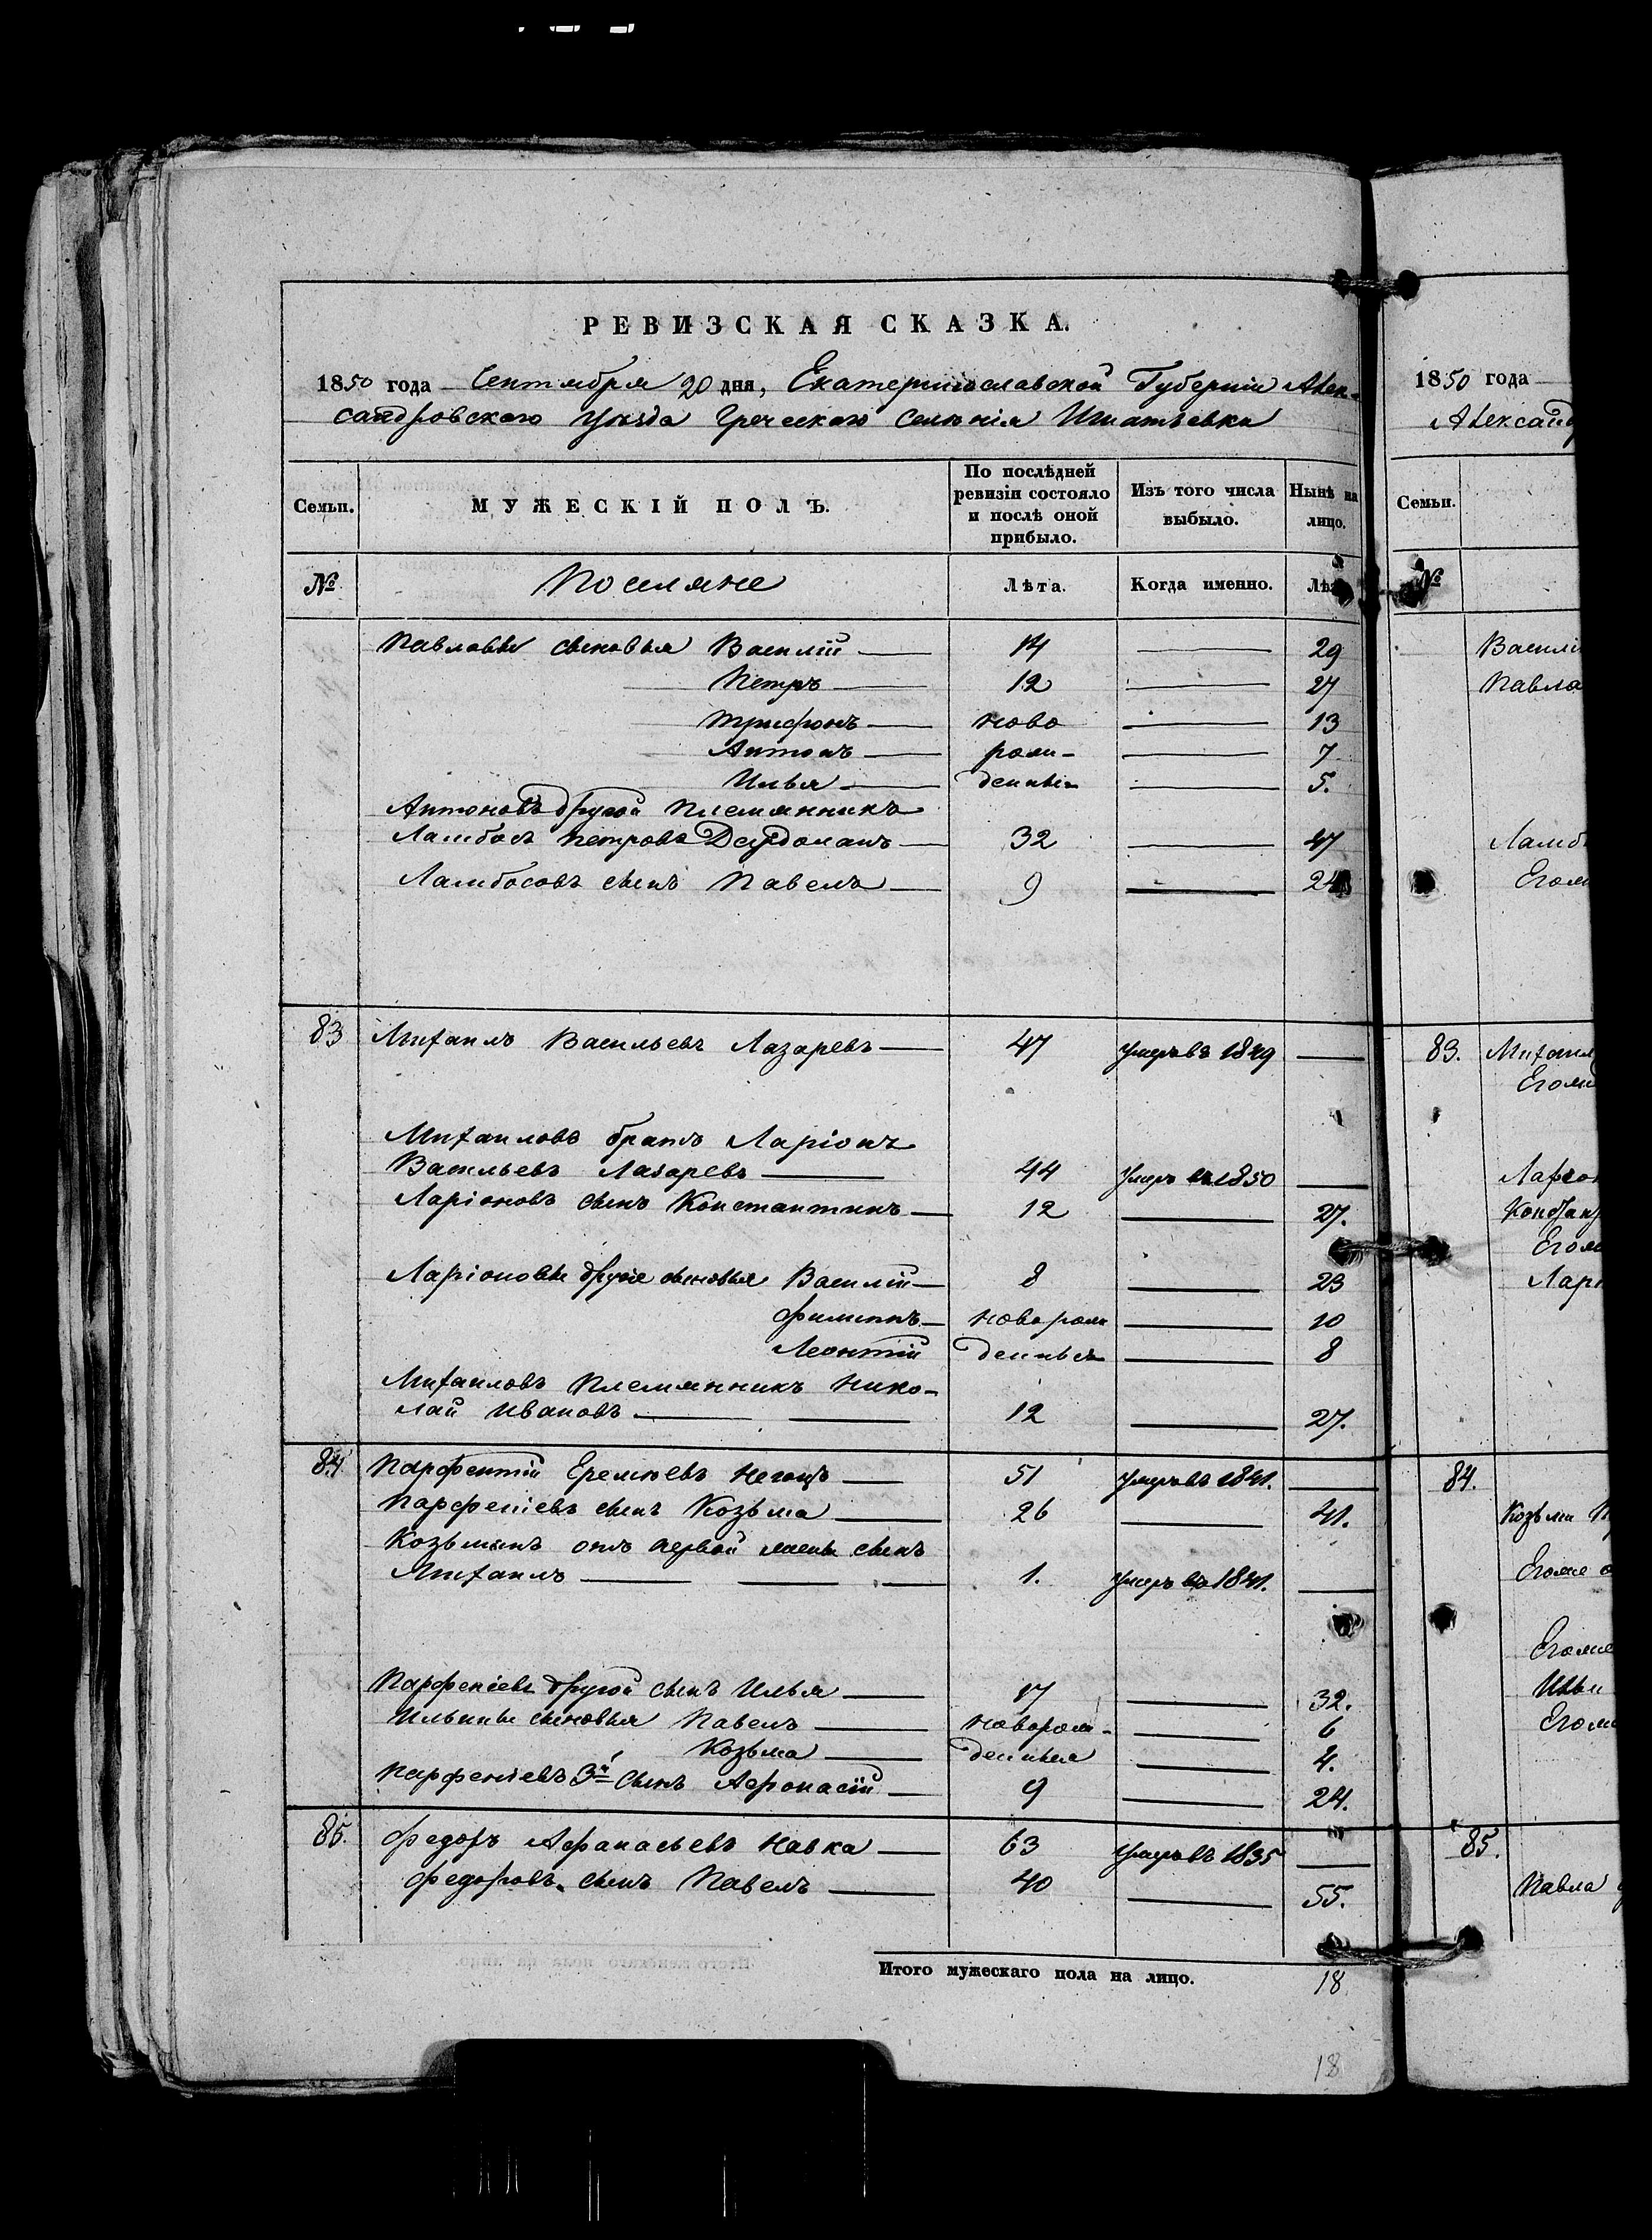 РЕВИЗСКАЯ СКАЗКА.
1850 года Сентября 20 дня, Екатеринославской Губерніи Алек-
сандровскаго Уѣзда Греческаго Селенія Игнатьевки
Семьи. МУЖЕСКІЙ ПОЛЪ. По послѣдней ревизіи состояло и послѣ оной прибыло. Изъ того числа выбыло. Нынѣ на лицо.
№ Поселяне Лѣта. Когда именно. Лѣ
Павловы сыновья Василій 14 — 29
Петръ 12 — 27
Трифонъ ново — 13
Антонъ рож- — 7
Илья денные — 5.
Антоновъ другой племянникъ
Ламбосъ Петровъ 32 — 47
Ламбосовъ сынъ Павелъ 9 — 24
83 Михаилъ Васильевъ Лазаревъ 47 умеръ въ 1849 —
Михаиловъ братъ Ларіонъ
Васильевъ Лазаревъ 44 умеръ въ 1850 —
Ларіоновъ сынъ Константинъ 12 — 27.
Ларіоновы другіе сыновья Василій 8 — 23
Филиппъ новорож — 10
Леонтій денные — 8
Михаиловъ племянникъ Нико-
лай Ивановъ 12 — 27.
84. Парфентій Еремѣевъ 51 умеръ въ 1841. —
Парфеніевъ сынъ Козьма 26 — 41.
Козьминъ отъ первой жены сынъ
Михаилъ 1. умеръ въ 1841. —
Парфеніевъ другой сынъ Илья 17 — 32.
Ильины сыновья Павелъ новорож- — 6
Козьма денные — 4.
Парфеніевъ 3й сынъ Афонасій 9 — 24.
85. Федоръ Афанасьевъ Кавка 63 умеръ въ 1835 —
Федоровъ сынъ Павелъ 40 — 55.
Итого мужескаго пола на лицо. 18
18
1850 года
Александ
Семьи.
№
Василі
Павла
Ламб
Егож
83. Михаил
Егож
Ларіон
Констан
Егож
Лар
84.
Козьмы
Егож
Егоже
Ильи
Егож
85.
Павла